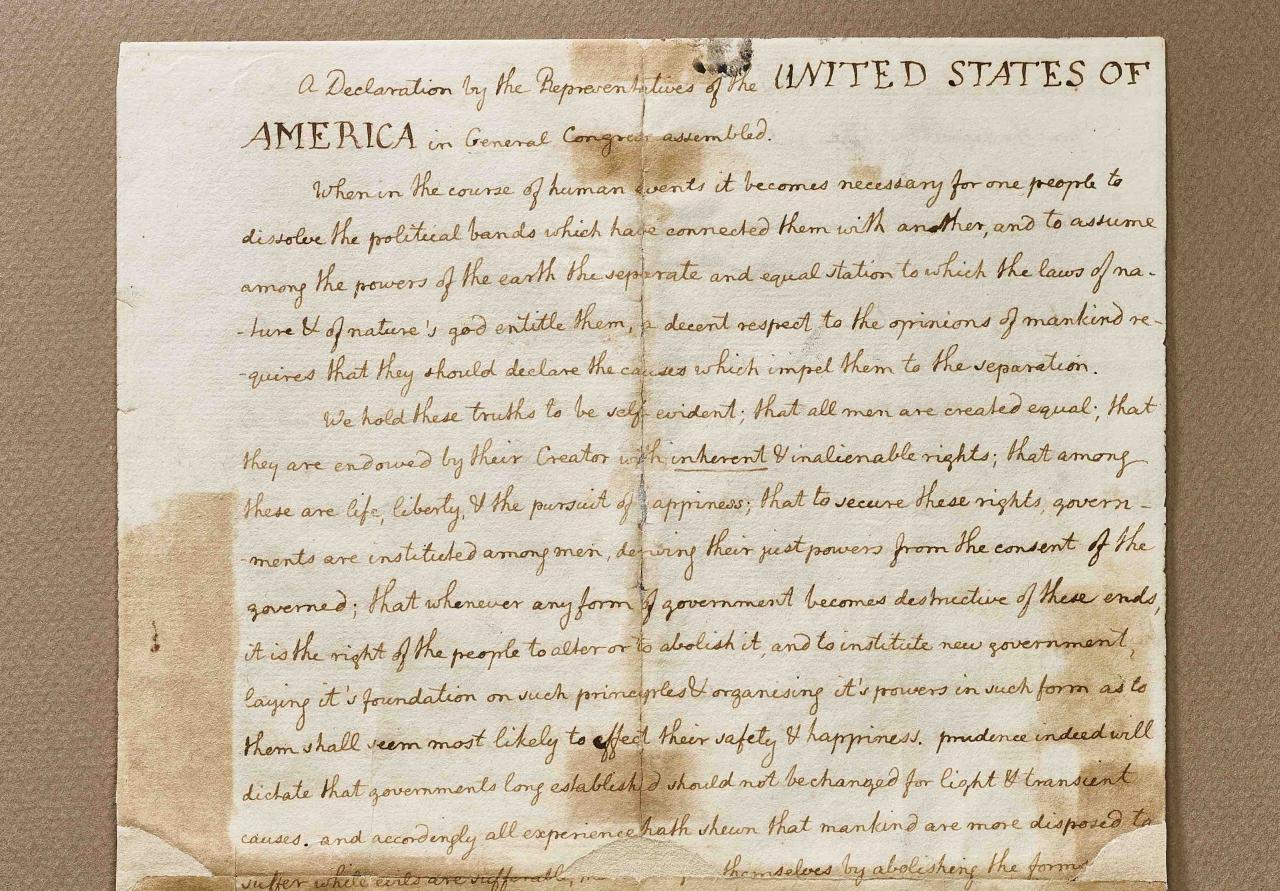 A Declaration by the Representatives of the UNITED STATES OF
AMERICA in General Congress assembled.
When in the course of human events it becomes necessary for one people to
dissolve the political bands which have connected them with another, and to assume
among the powers of the earth the separate and equal station to which the laws of na-
-ture & of nature's god entitle them, a decent respect to the opinions of mankind re-
-quires that they should declare the causes which impel them to the separation.
We hold these truths to be self evident; that all men are created equal; that
they are endowed by their Creator with inherent & inalienable rights; that among
these are life, liberty, & the pursuit of happiness; that to secure these rights, govern-
-ments are instituted among men, deriving their just powers from the consent of the
governed; that whenever any form of government becomes destructive of these ends,
it is the right of the people to alter or to abolish it, and to institute new government,
laying it's foundation on such principles & organising it's powers in such form as to
them shall seem most likely to effect their safety & happiness. prudence indeed will
dictate that governments long established should not be changed for light & transient
causes. and accordingly all experience hath shewn that mankind are more disposed to
suffer while evils are sufferable, themselves by abolishing the forms